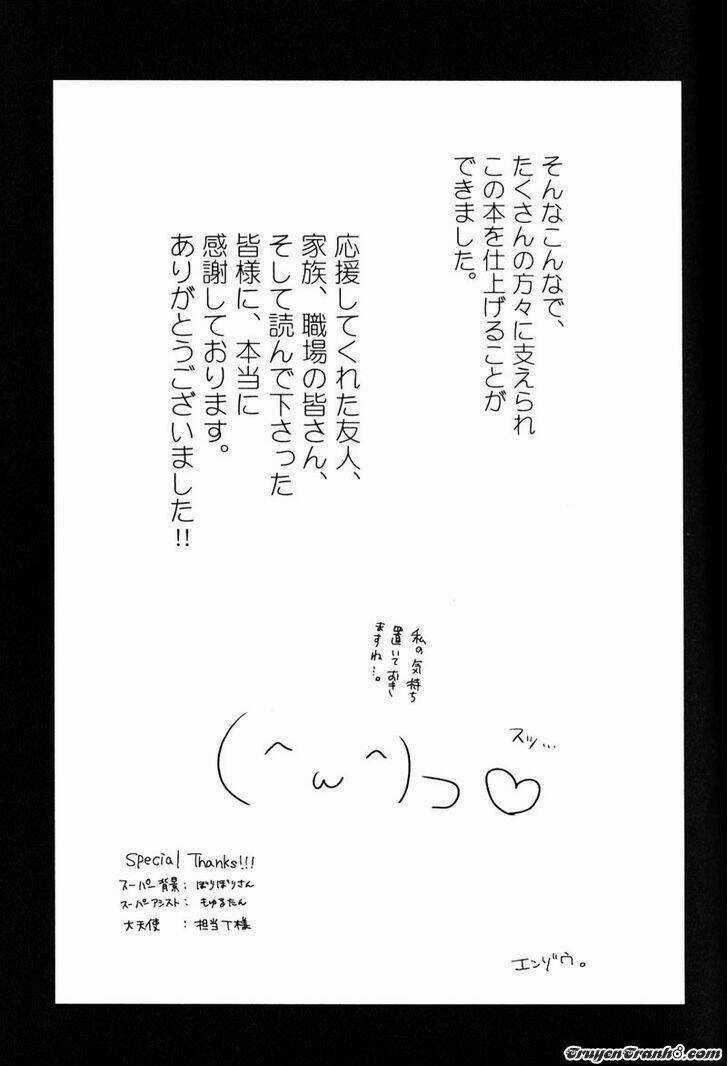 そんなこんなで、
たくさんの方々に支えられ
この本を仕上げることが
できました。
応援してくれた友人、
家族、職場の皆さん、
そして読んで下さった
皆様に、本当に
感謝しております。
ありがとうございました!!
私の気持ち
置いておき
ますね…。
(^ω^)っ♡
スッ…
Special Thanks!!!
スーパー背景:ぽりぽりさん
スーパーアシスト:もゅるたん
大天使:担当T様
エンゾウ。
TruyenTranh8.com